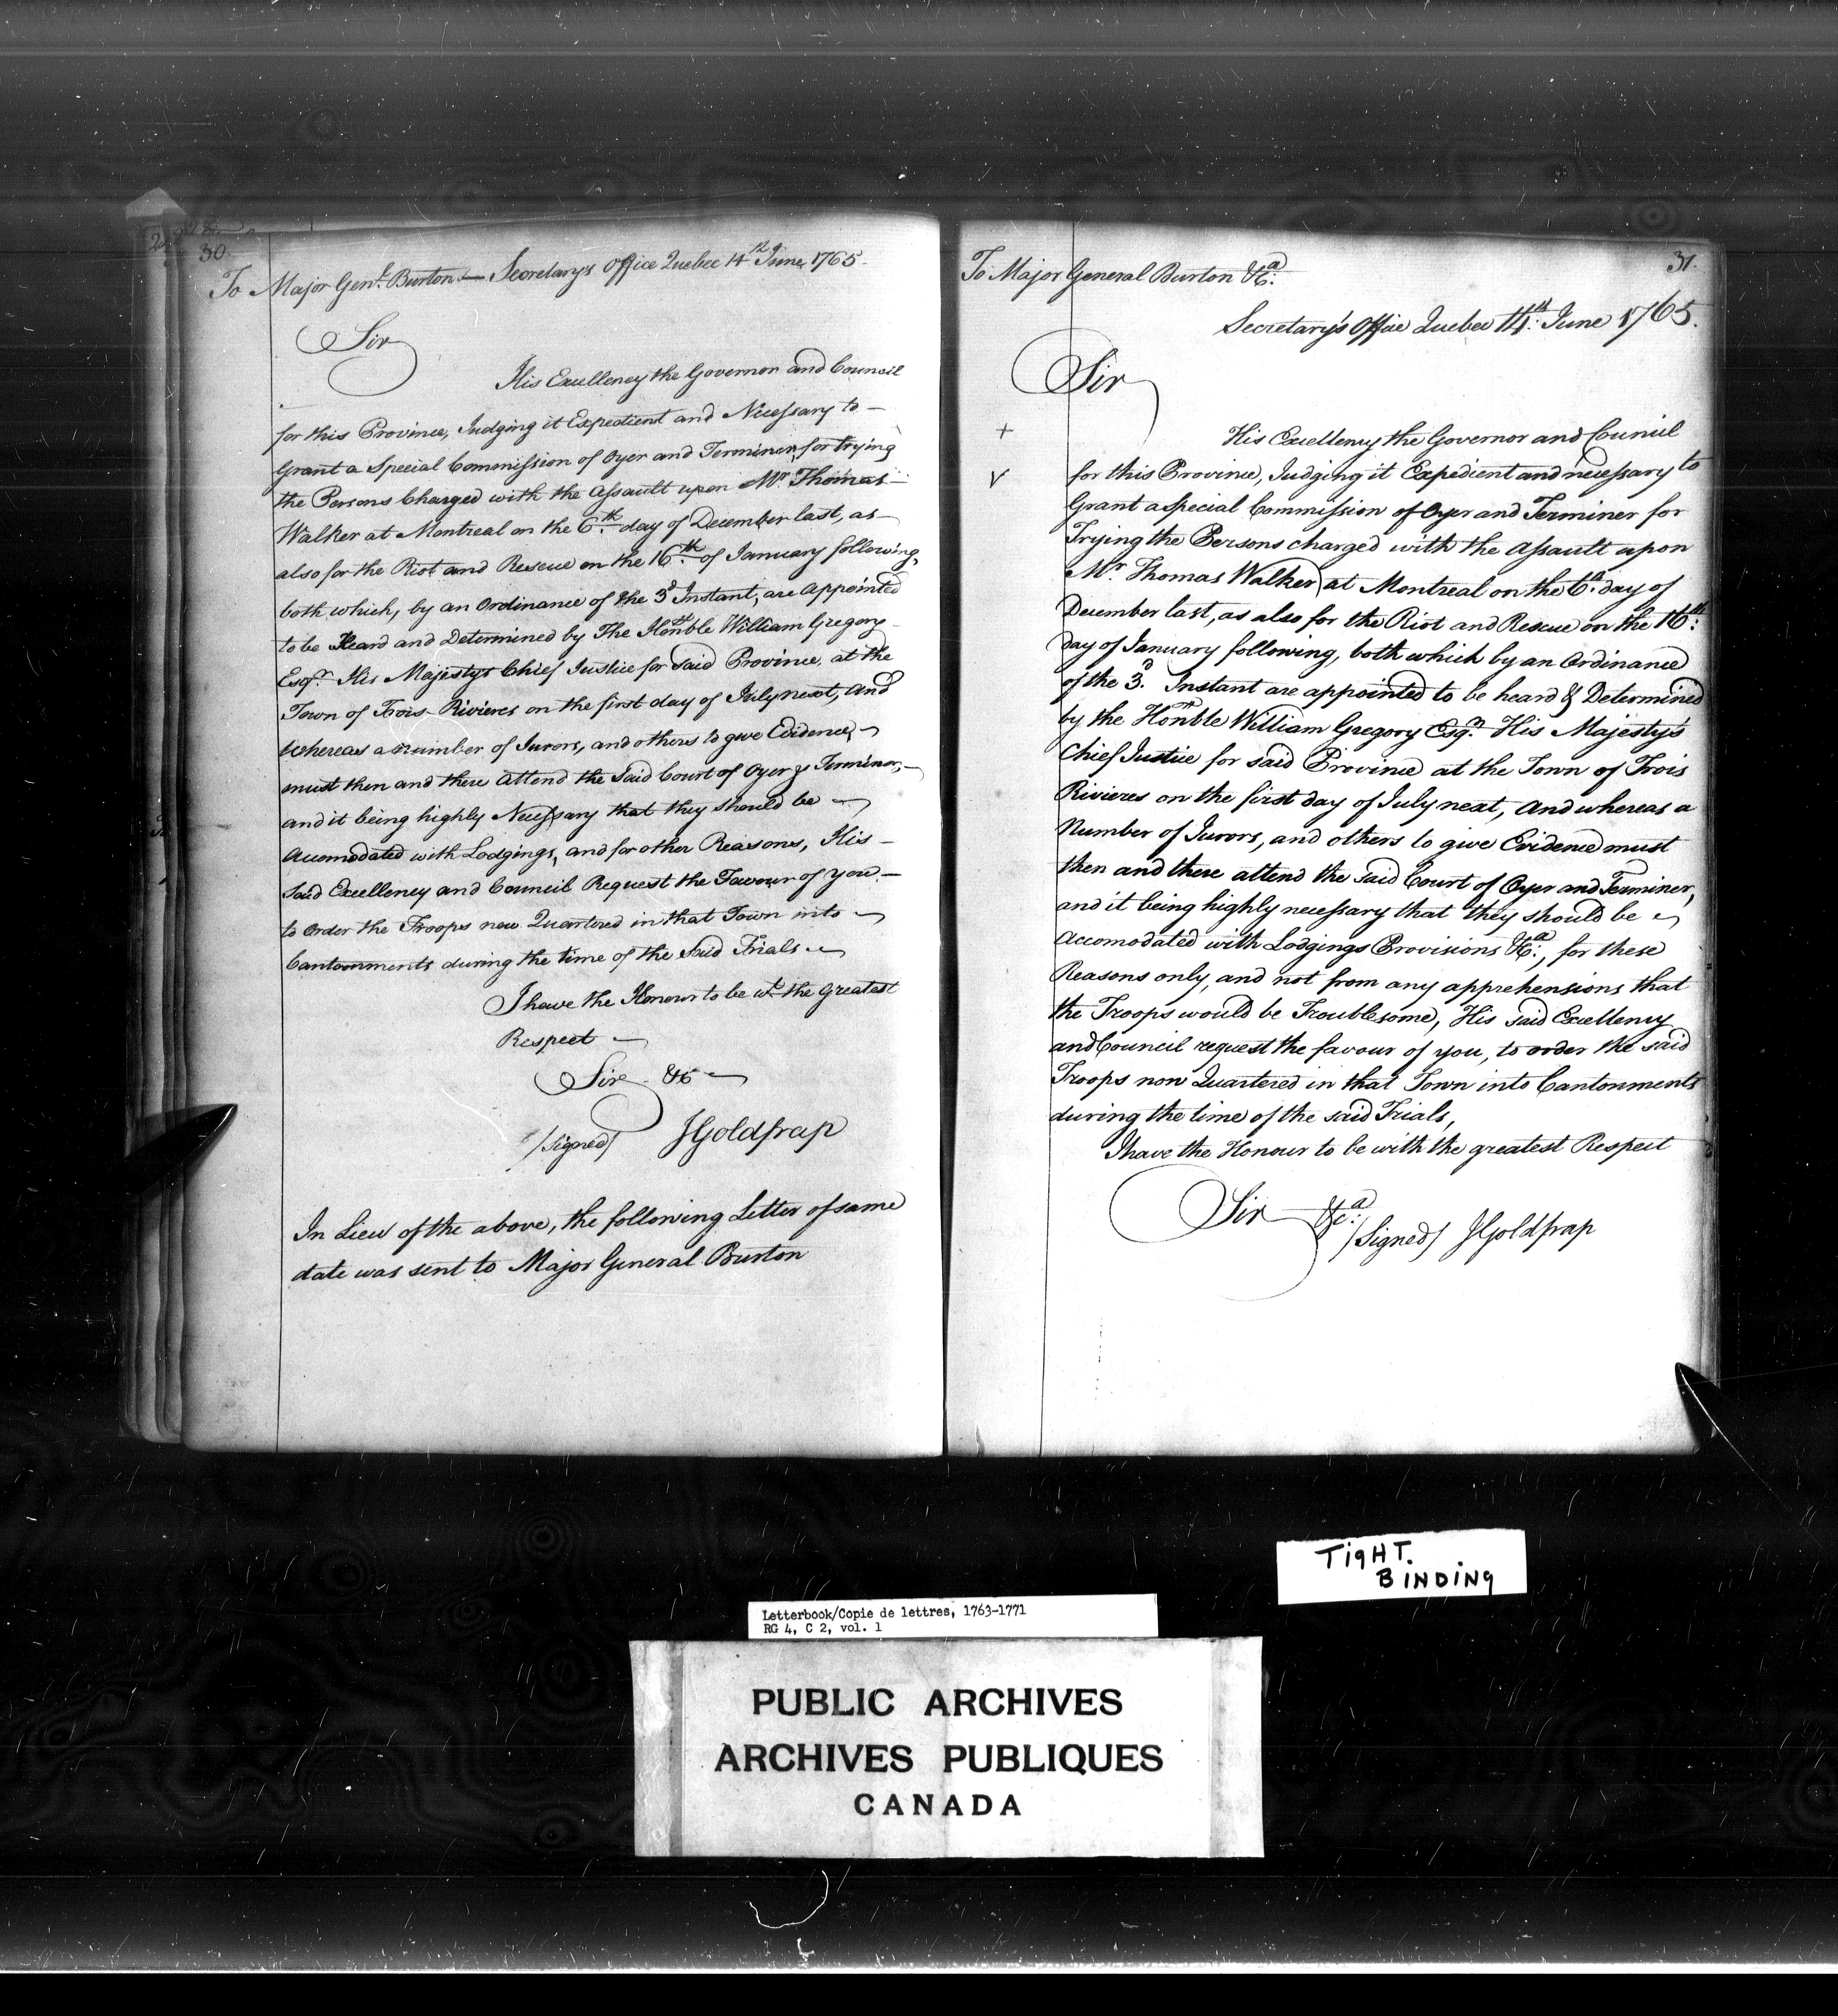 30.
To Major Gen.l Burton — Secretary's Office Quebec 14th June, 1765.
Sir
His Excellency the Governor and Council
for this Province, Judging it Expedient and Necessary to —
Grant a Special Commission of Oyer and Terminer, for trying
the Persons Charged with the Assault upon Mr. Thomas —
Walker at Montreal on the 6th. day of December last, as —
also for the Riot and Rescue on the 16th. of January following,
both which, by an Ordinance of the 3d Instant, are Appointed
to be Heard and Determined by The Honble William Gregory
Esqr. His Majestys Chief Justice for Said Province, at the
Town of Trois-Rivieres on the first day of July next, And
Whereas a number of Jurors, and others to give Evidence, —
must then and there Attend the Said Court of Oyer & Terminer, —
and it being highly Necessary that they should be —
Accomodated with Lodgings, and for other Reasons, His —
Said Excellency and Council Request the Favour of you —
to Order the Troops now Quartered in that Town into —
Cantonments during the time of the Said Trials —
I have the Honour to be wt. the Greatest
Respect —
Sir &c —
/Signed/ JGoldfrap
In Lieu of the above, the following Letter of same
date was sent to Major General Burton
31.
To Major General Burton &ca.
Secretary's Office Quebec 14th. June 1765.
Sir
+
His Excellency the Governor and Council
V
for this Province, Judging it Expedient and necessary to
Grant a Special Commission of Oyer and Terminer for
Trying the Persons charged with the Assault upon
Mr. Thomas Walker, at Montreal on the 6th. day of
December last, as also for the Riot and Rescue on the 16th.
day of January following, both which by an Ordinance
of the 3d. Instant are appointed to be heard & Determined
by the Honble William Gregory Esqr. His Majesty's
Chief Justice for said Province at the Town of Trois
Rivieres on the first day of July next, And whereas a
Number of Jurors, and others to give Evidence must
then and there attend the said Court of Oyer and Terminer,
and it being highly necessary that they should be
Accomodated with Lodgings Provisions &ca., for these
Reasons only, and not from any apprehensions that
the Troops would be Troublesome, His said Excellency
and Council request the favour of you, to order the said
Troops now Quartered in that Town into Cantonments
during the time of the said Trials,
I have the Honour to be with the greatest Respect
Sir &ca.
/Signed/ JGoldfrap
TIGHT.
BINDING
Letterbook/Copie de lettres, 1763-1771
RG 4, C 2, vol. 1
PUBLIC ARCHIVES
ARCHIVES PUBLIQUES
CANADA